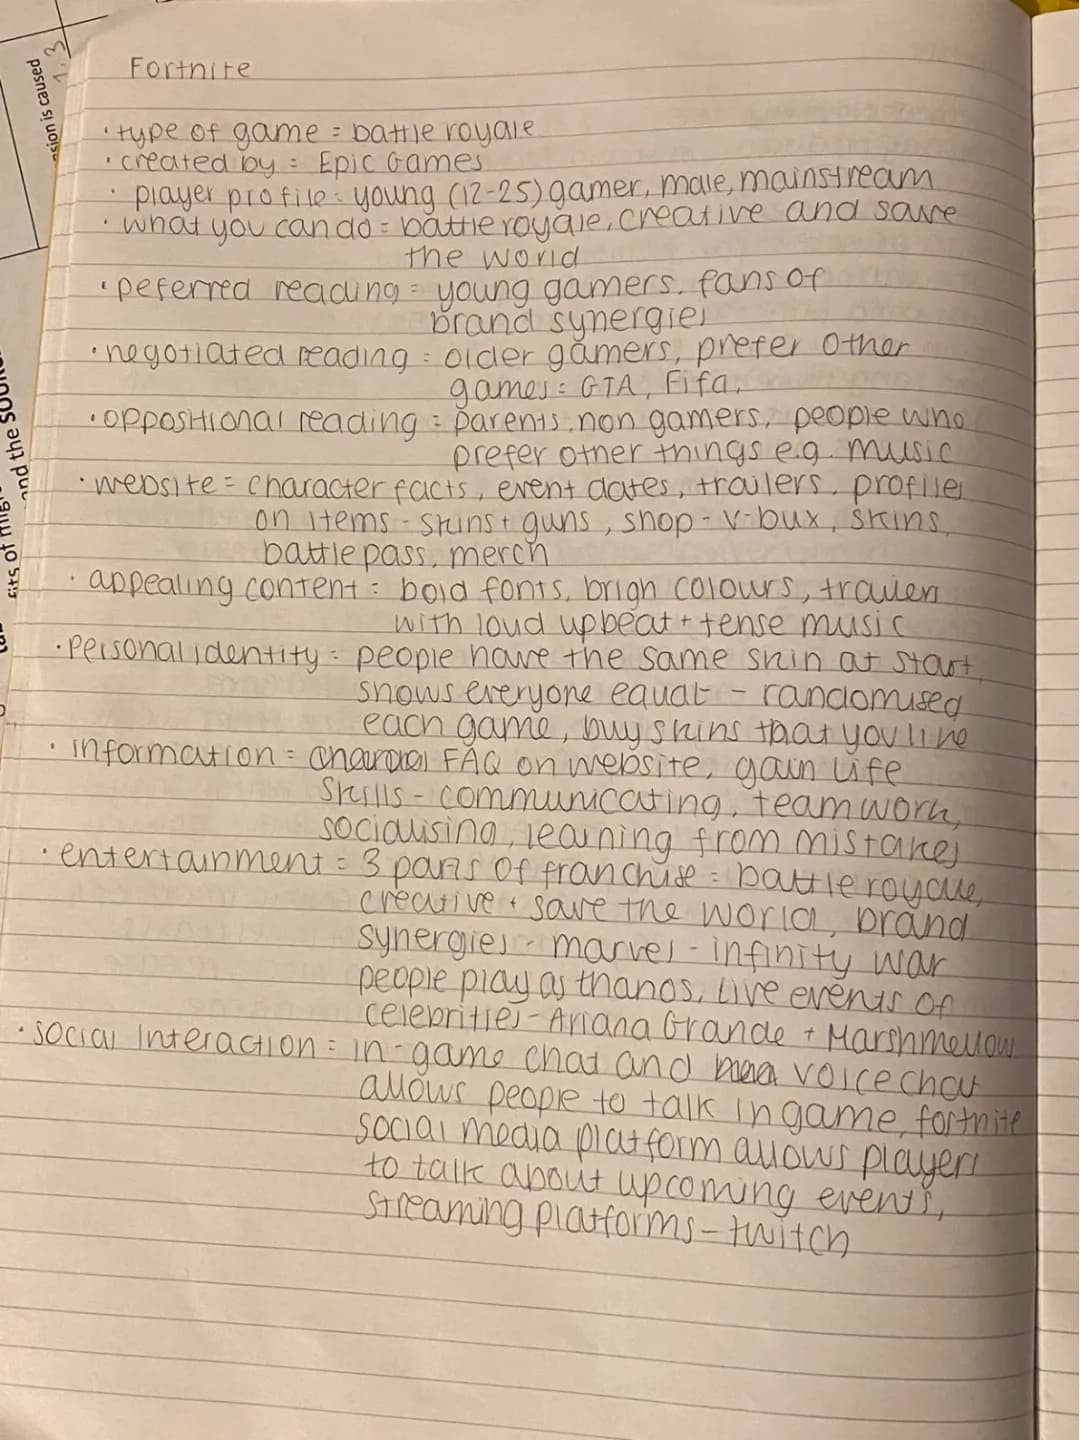 sion is caused
1.3
and the sour
Fortnite
• type of game = battle royale
• created by = Epic Games
• player profile = young (12-25) gamer, male, mainstream
• what you can do = battle royale, creative and save
the world
• peferred reading = young gamers, fans of
brand synergies
• negotiated reading = older gamers, prefer other
games = GTA, Fifa,
• oppositional reading = parents, non gamers, people who
prefer other things e.g. music
• website = character facts, event dates, trailers, profiles
on items - skins + guns, shop - v-bux, skins,
battle pass, merch
• appealing content = bold fonts, brigh colours, trailers
with loud upbeat + tense music
• personal identity = people have the same skin at start,
shows everyone equal - randomised
each game, buy skins that you like
• information = FAQ on website, gain life
skills - communicating, teamwork,
socialising, learning from mistakes
• entertainment = 3 parts of franchise = battle royale,
creative + save the world, brand
synergies - marvel - infinity war
people play as thanos, live events of
celebrities - Ariana Grande + Marshmellow
• social interaction = in-game chat and voice chat
allows people to talk in game, fortnite
social media platform allows players
to talk about upcoming events,
streaming platforms - twitch